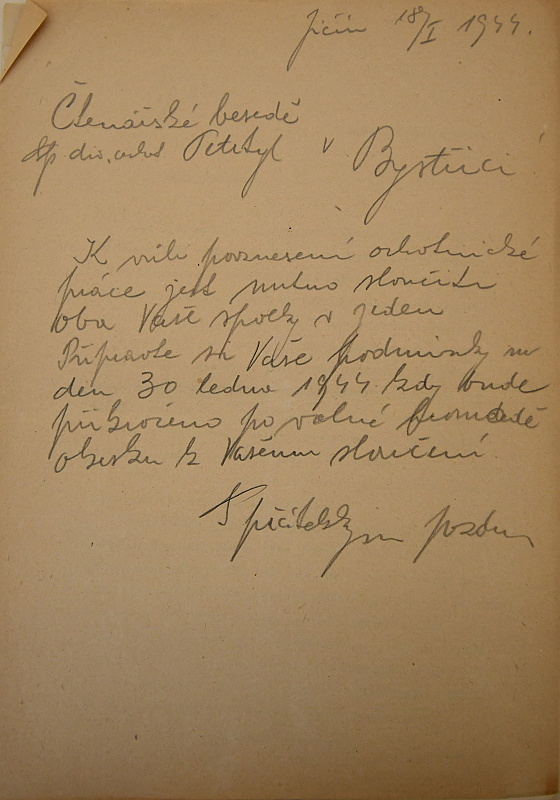 Jičín 18/I 1944.
Čtenářské besedě
Sp div. ochot Tetetyl v Bystřici
K vůli povznesení ochotnické
práce jest nutno sloučiti
oba Vaše spolky v jeden
Připravte si Vaše podmínky na
den 30 ledna 1944. kdy bude
přikročeno po valné hromadě
okrsku k Vašemu sloučení.
S přátelským pozdra